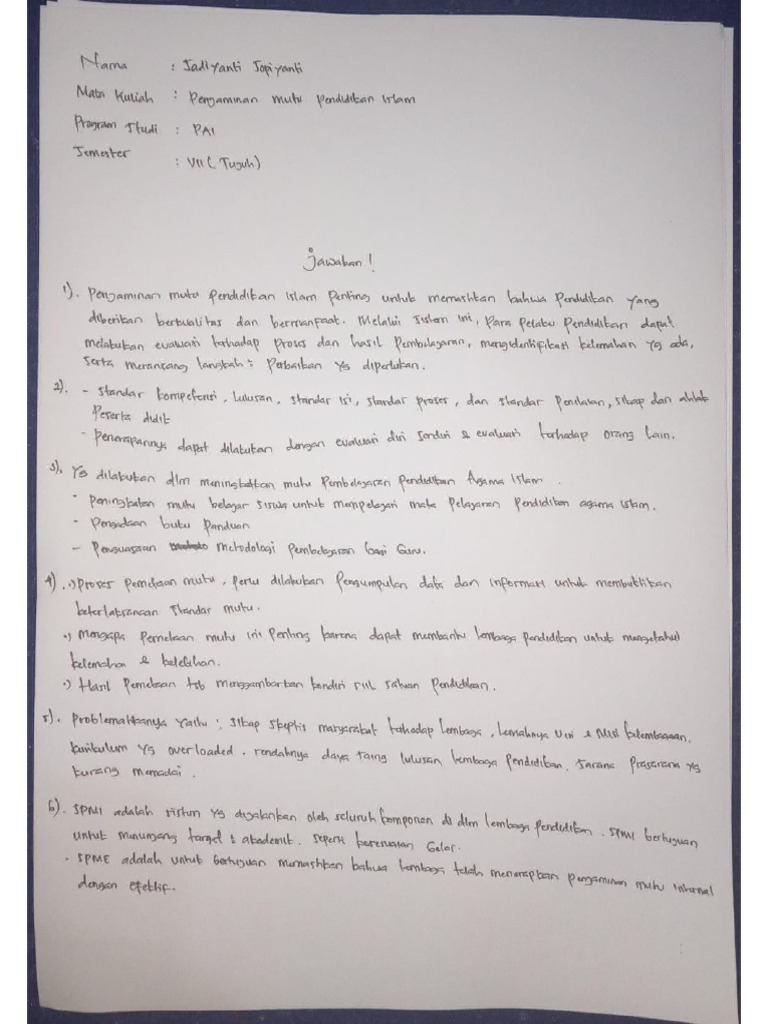 Nama : Sadiyanti Sopiyanti
Mata Kuliah : Penjaminan mutu Pendidikan Islam
Program Studi : PAI
Semester : VII (Tujuh)
Jawaban !
1). Penjaminan mutu Pendidikan Islam Penting untuk memastikan bahwa Pendidikan yang
diberikan berkualitas dan bermanfaat. Melalui Sistem ini, Para Pelaku Pendidikan dapat
melakukan evaluasi terhadap Proses dan hasil Pembelajaran, mengidentifikasi kelemahan yg ada,
serta merancang langkah² Perbaikan yg diperlukan.
2). - Standar kompetensi, lulusan, standar isi, standar proses, dan standar Penilaian, sikap dan akhlak
Peserta didik
- Penerapannya dapat dilakukan dengan evaluasi diri sendiri & evaluasi terhadap orang lain.
3). Yg dilakukan dlm meningkatkan mutu Pembelajaran Pendidikan Agama Islam.
- Peningkatan mutu belajar siswa untuk mempelajari mata Pelajaran Pendidikan agama Islam.
- Pengadaan buku Panduan
- Penguasaan metodologi Pembelajaran bagi Guru.
4). •) Proses Pemetaan mutu, Perlu dilakukan Pengumpulan data dan informasi untuk membuktikan
keterlaksanaan Standar mutu.
•) Mengapa Pemetaan mutu ini Penting karena dapat membantu lembaga Pendidikan untuk mengetahui
kelemahan & kelebihan.
•) Hasil Pemetaan tsb menggambarkan kondisi riil satuan Pendidikan.
5). Problematikanya yaitu : Sikap skeptis masyarakat terhadap lembaga, lemahnya visi & Misi kelembagaan,
kurikulum yg overloaded. rendahnya daya saing lulusan lembaga Pendidikan. Sarana Prasarana yg
kurang memadai.
6). SPMI adalah sistim yg dijalankan oleh seluruh komponen di dlm lembaga Pendidikan. SPMI bertujuan
untuk menunjang target² akademik. Seperti kesesuaian Gelar.
- SPME adalah untuk bertujuan memastikan bahwa lembaga telah menerapkan penjaminan mutu internal
dengan efektif.